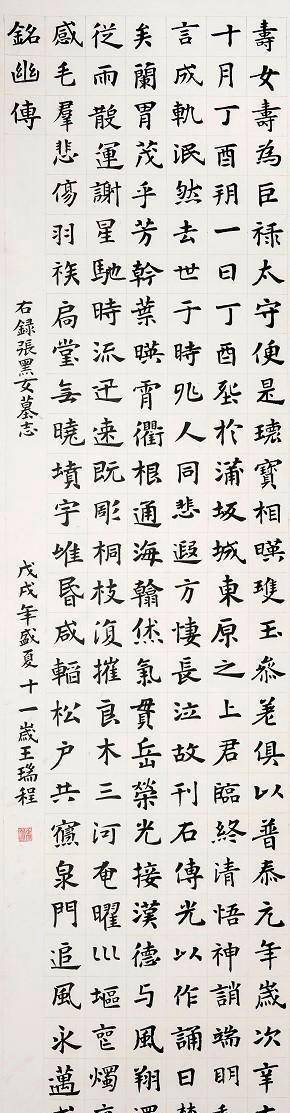 壽女壽為巨祿太守便是瓌寶相暎瓊玉參差俱以普泰元年歲次辛
十月丁酉朔一日丁酉塟於蒲坂城東原之上君臨終清悟神誚端明
言成軌泯然去世于時兆人同悲遐方悽長泣故刊石傳光以作誦曰
矣蘭胃茂乎芳幹葉暎霄衢根通海翰倏氣貫岳榮光接漢德与風翔
從雨散運謝星馳時流迅速既彫桐枝復摧良木三河奄曜川塸喪燭
感毛羣悲傷羽族扃堂無曉墳宇堆昏咸輼松戶共寢泉門追風永邁
銘幽傳
右錄張黑女墓志
戊戌年盛夏十一歲王瑞程